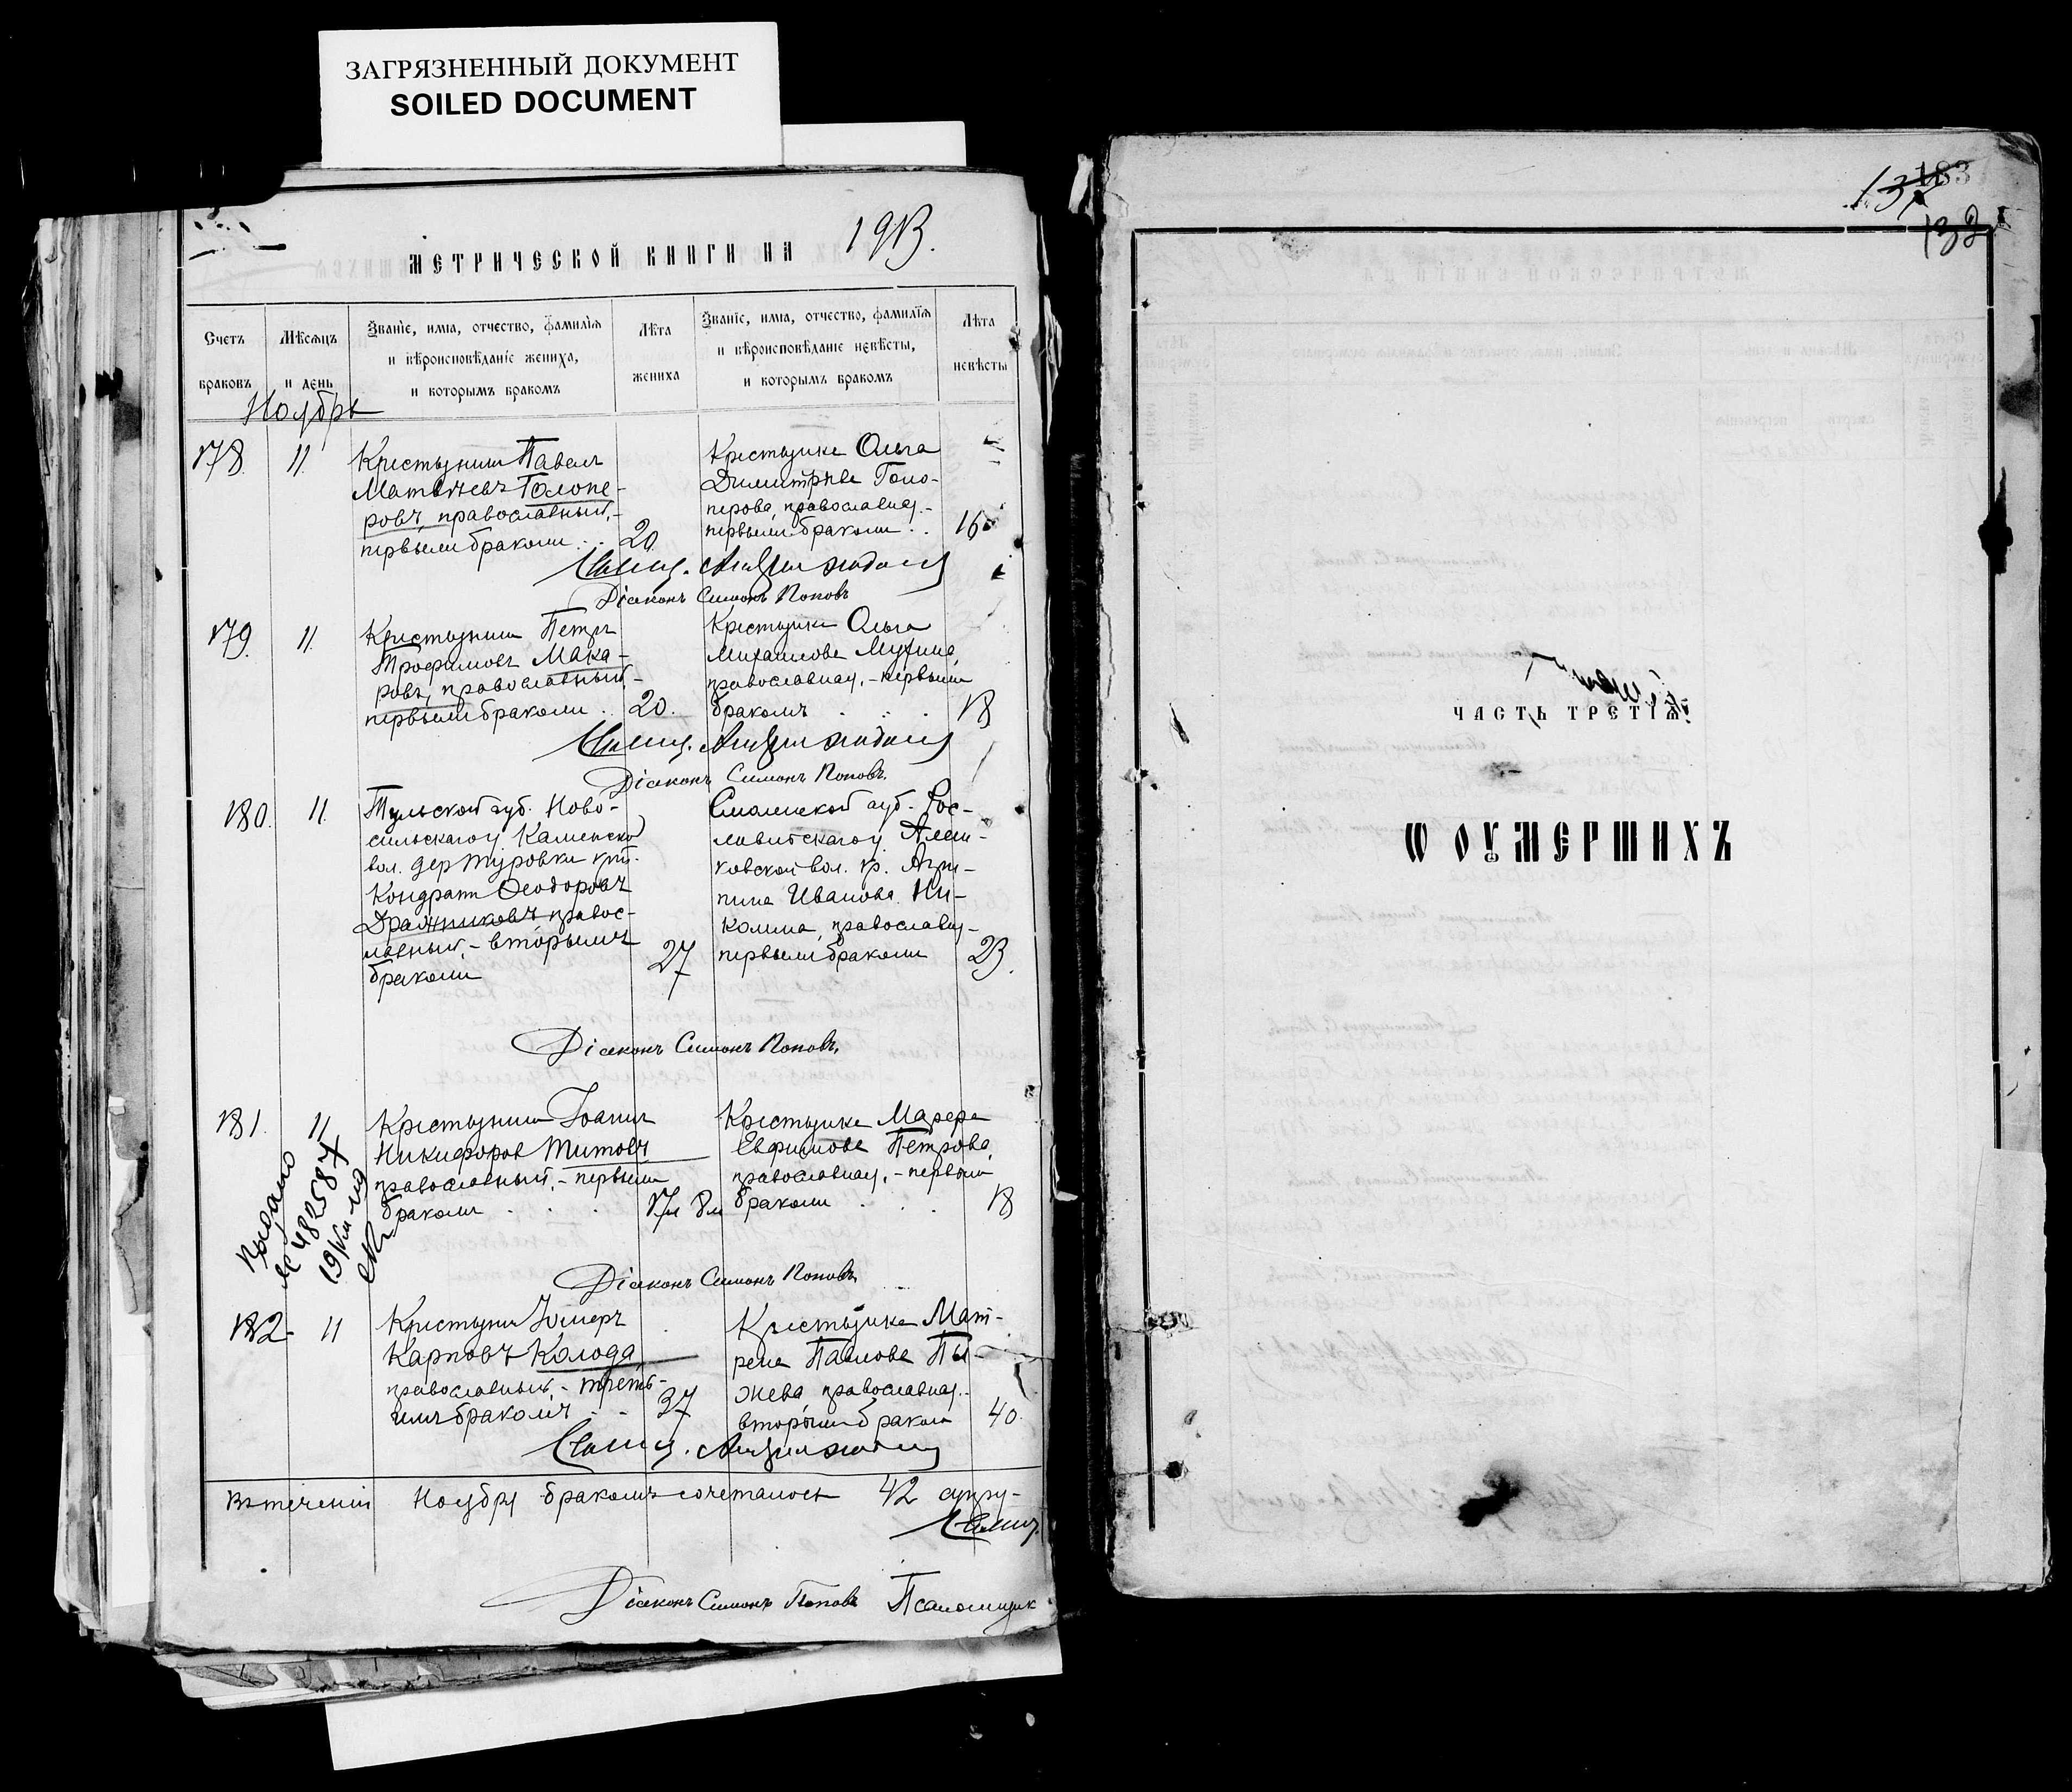 ЗАГРЯЗНЕННЫЙ ДОКУМЕНТ
SOILED DOCUMENT
МЕТРИЧЕСКОЙ КНИГИ НА 1913.
Счетъ браковъ
Мѣсяцъ и день
Званіе, имя, отчество, фамилія
и вѣроисповѣданіе жениха,
и которымъ бракомъ
Лѣта жениха
Званіе, имя, отчество, фамилія
и вѣроисповѣданіе невѣсты,
и которымъ бракомъ
Лѣта невѣсты
Ноябрь
178. 11.
Крестьянинъ Павелъ
Матвѣевъ Голопе-
ровъ, православный,-
первымъ бракомъ . . 20.
Крестьянка Ольга
Димитріева Голо-
перова, православная,-
первымъ бракомъ . . 16
Діаконъ Симонъ Поповъ
179. 11.
Крестьянинъ Петръ
Трофимовъ Мака-
ровъ, православный,-
первымъ бракомъ . . 20.
Крестьянка Ольга
Михаилова Мухина,
православная,-первымъ
бракомъ . . . 18
Діаконъ Симонъ Поповъ.
180. 11.
Тульской губ. Ново-
сильскаго у. Каменской
вол. дер Туровки кр.
Кондратъ Ѳеодоровъ
Дражниковъ правос-
лавный,- вторымъ
бракомъ 27
Смоленской губ. Рос-
лавльскаго у.
ковской вол. кр. Агри-
пина Иванова Ни-
колина, православная,-
первымъ бракомъ 23.
Діаконъ Симонъ Поповъ.
181. 11
Крестьянинъ Іоаннъ
Никифоровъ Титовъ
православный,- первымъ
бракомъ . . . 17л 8м
Крестьянка Марѳа
Евфимова Петрова,
православная,- первымъ
бракомъ . . . 18
№ 482587
Діаконъ Симонъ Поповъ.
182- 11
Карповъ Колода,
православный,- треть-
имъ бракомъ . - 37
Крестьянка Мат-
рена Павлова Пы-
жева, православная,-
вторымъ бракомъ 40.
Въ теченіи Ноября бракомъ сочеталось 42 супру-
Діаконъ Симонъ Поповъ Псаломщик
183
132
ЧАСТЬ ТРЕТІЯ
Ѡ ОУМЕРШИХЪ